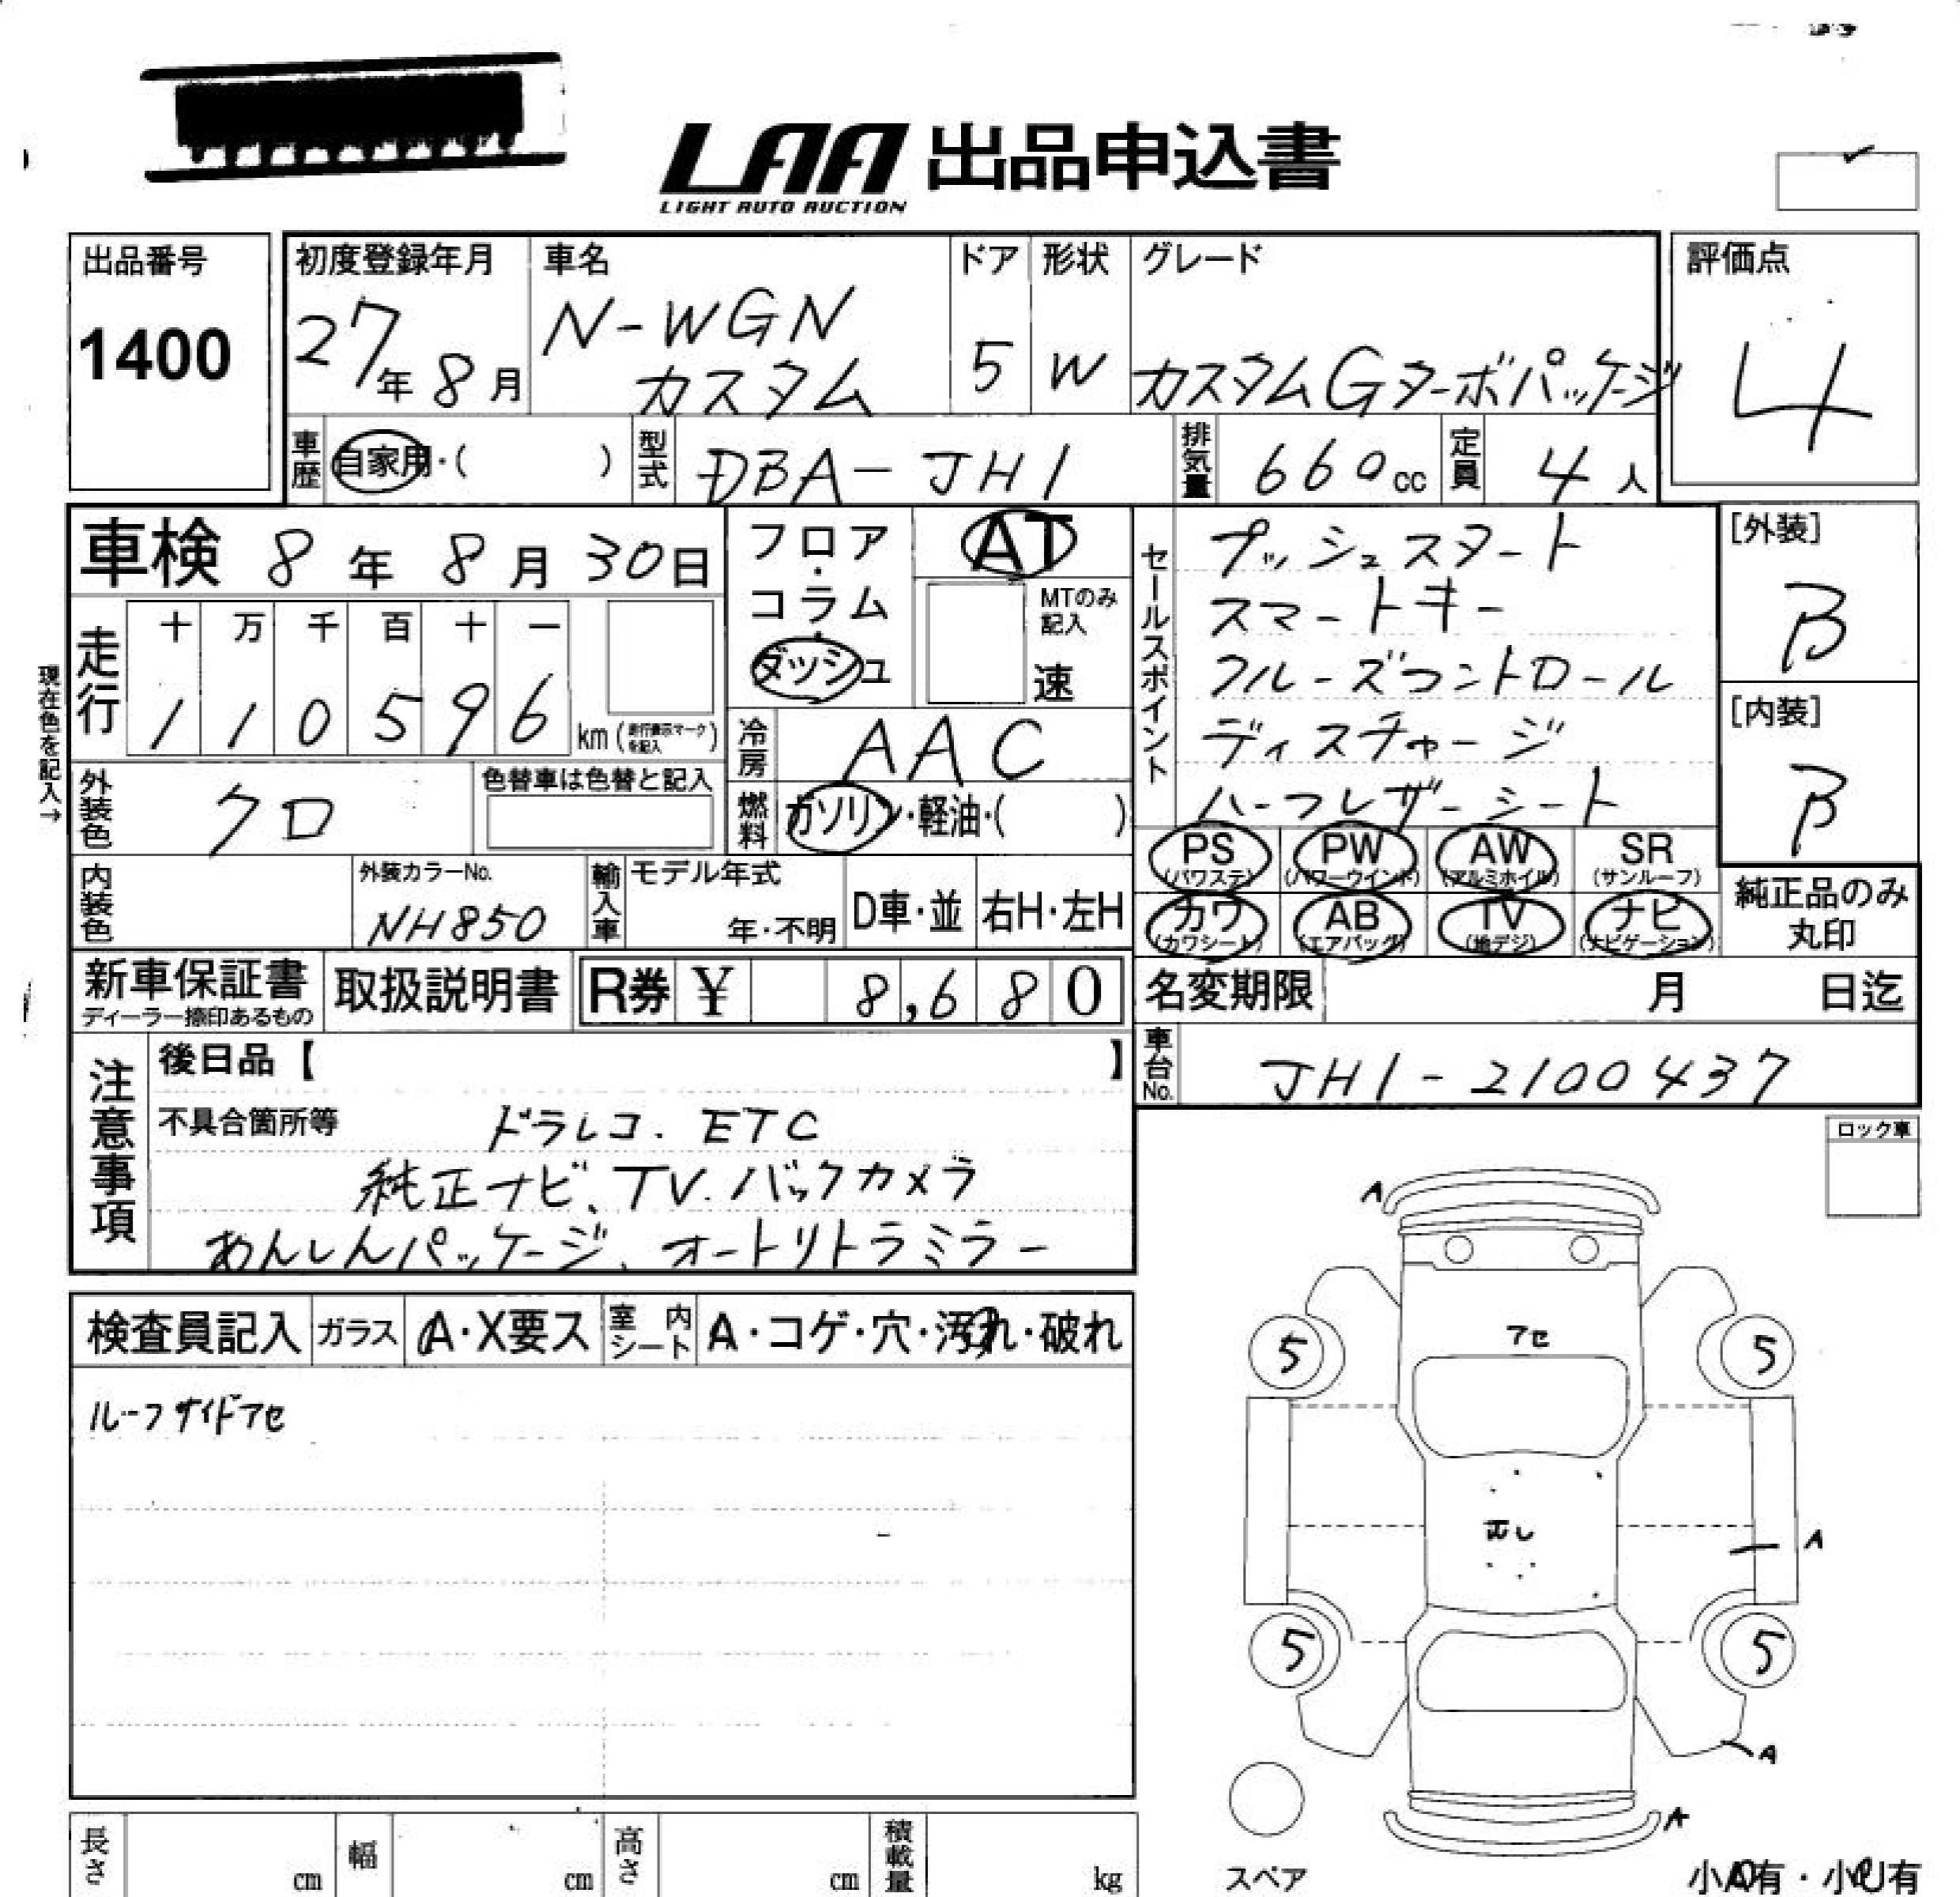 LAA 出品申込書
LIGHT AUTO AUCTION
出品番号
1400
初度登録年月
27年8月
車名
N-WGN
カスタム
ドア
5
形状
W
グレード
カスタムGターボパッケージ
評価点
4
車歴 自家用・( )
型式 DBA-JH1
排気量 660cc
定員 4人
車検 8年8月30日
フロア・コラム・ダッシュ
AT
MTのみ記入
速
現在色を記入→
走行
十 万 千 百 十 一
1 1 0 5 9 6 km
冷房 AAC
外装色 クロ
色替車は色替と記入
燃料 ガソリン・軽油・( )
セールスポイント
プッシュスタート
スマートキー
クルーズコントロール
ディスチャージ
ハーフレザーシート
[外装]
B
[内装]
B
PS (パワステ)
PW (パワーウインド)
AW (アルミホイル)
SR (サンルーフ)
カワ (カワシート)
AB (エアバッグ)
TV (地デジ)
ナビ (ナビゲーション)
純正品のみ丸印
内装色
外装カラーNo.
NH850
輸入車
モデル年式
年・不明
D車・並
右H・左H
新車保証書
ディーラー捺印あるもの
取扱説明書
R券 ¥ 8,680
名変期限 月 日迄
車台No. JH1-2100437
注意事項
後日品【 】
不具合箇所等
ドラレコ. ETC
純正ナビ、TV.バックカメラ
あんしんパッケージ、オートリトラミラー
ロック車
検査員記入
ガラス
A・X要ス
室内シート
A・コゲ・穴・汚れ・破れ
ルーフサイドアセ
A
アセ
5
5
むし
A
5
5
A
A
スペア
小A有・小U有
長さ cm
幅 cm
高さ cm
積載量 kg